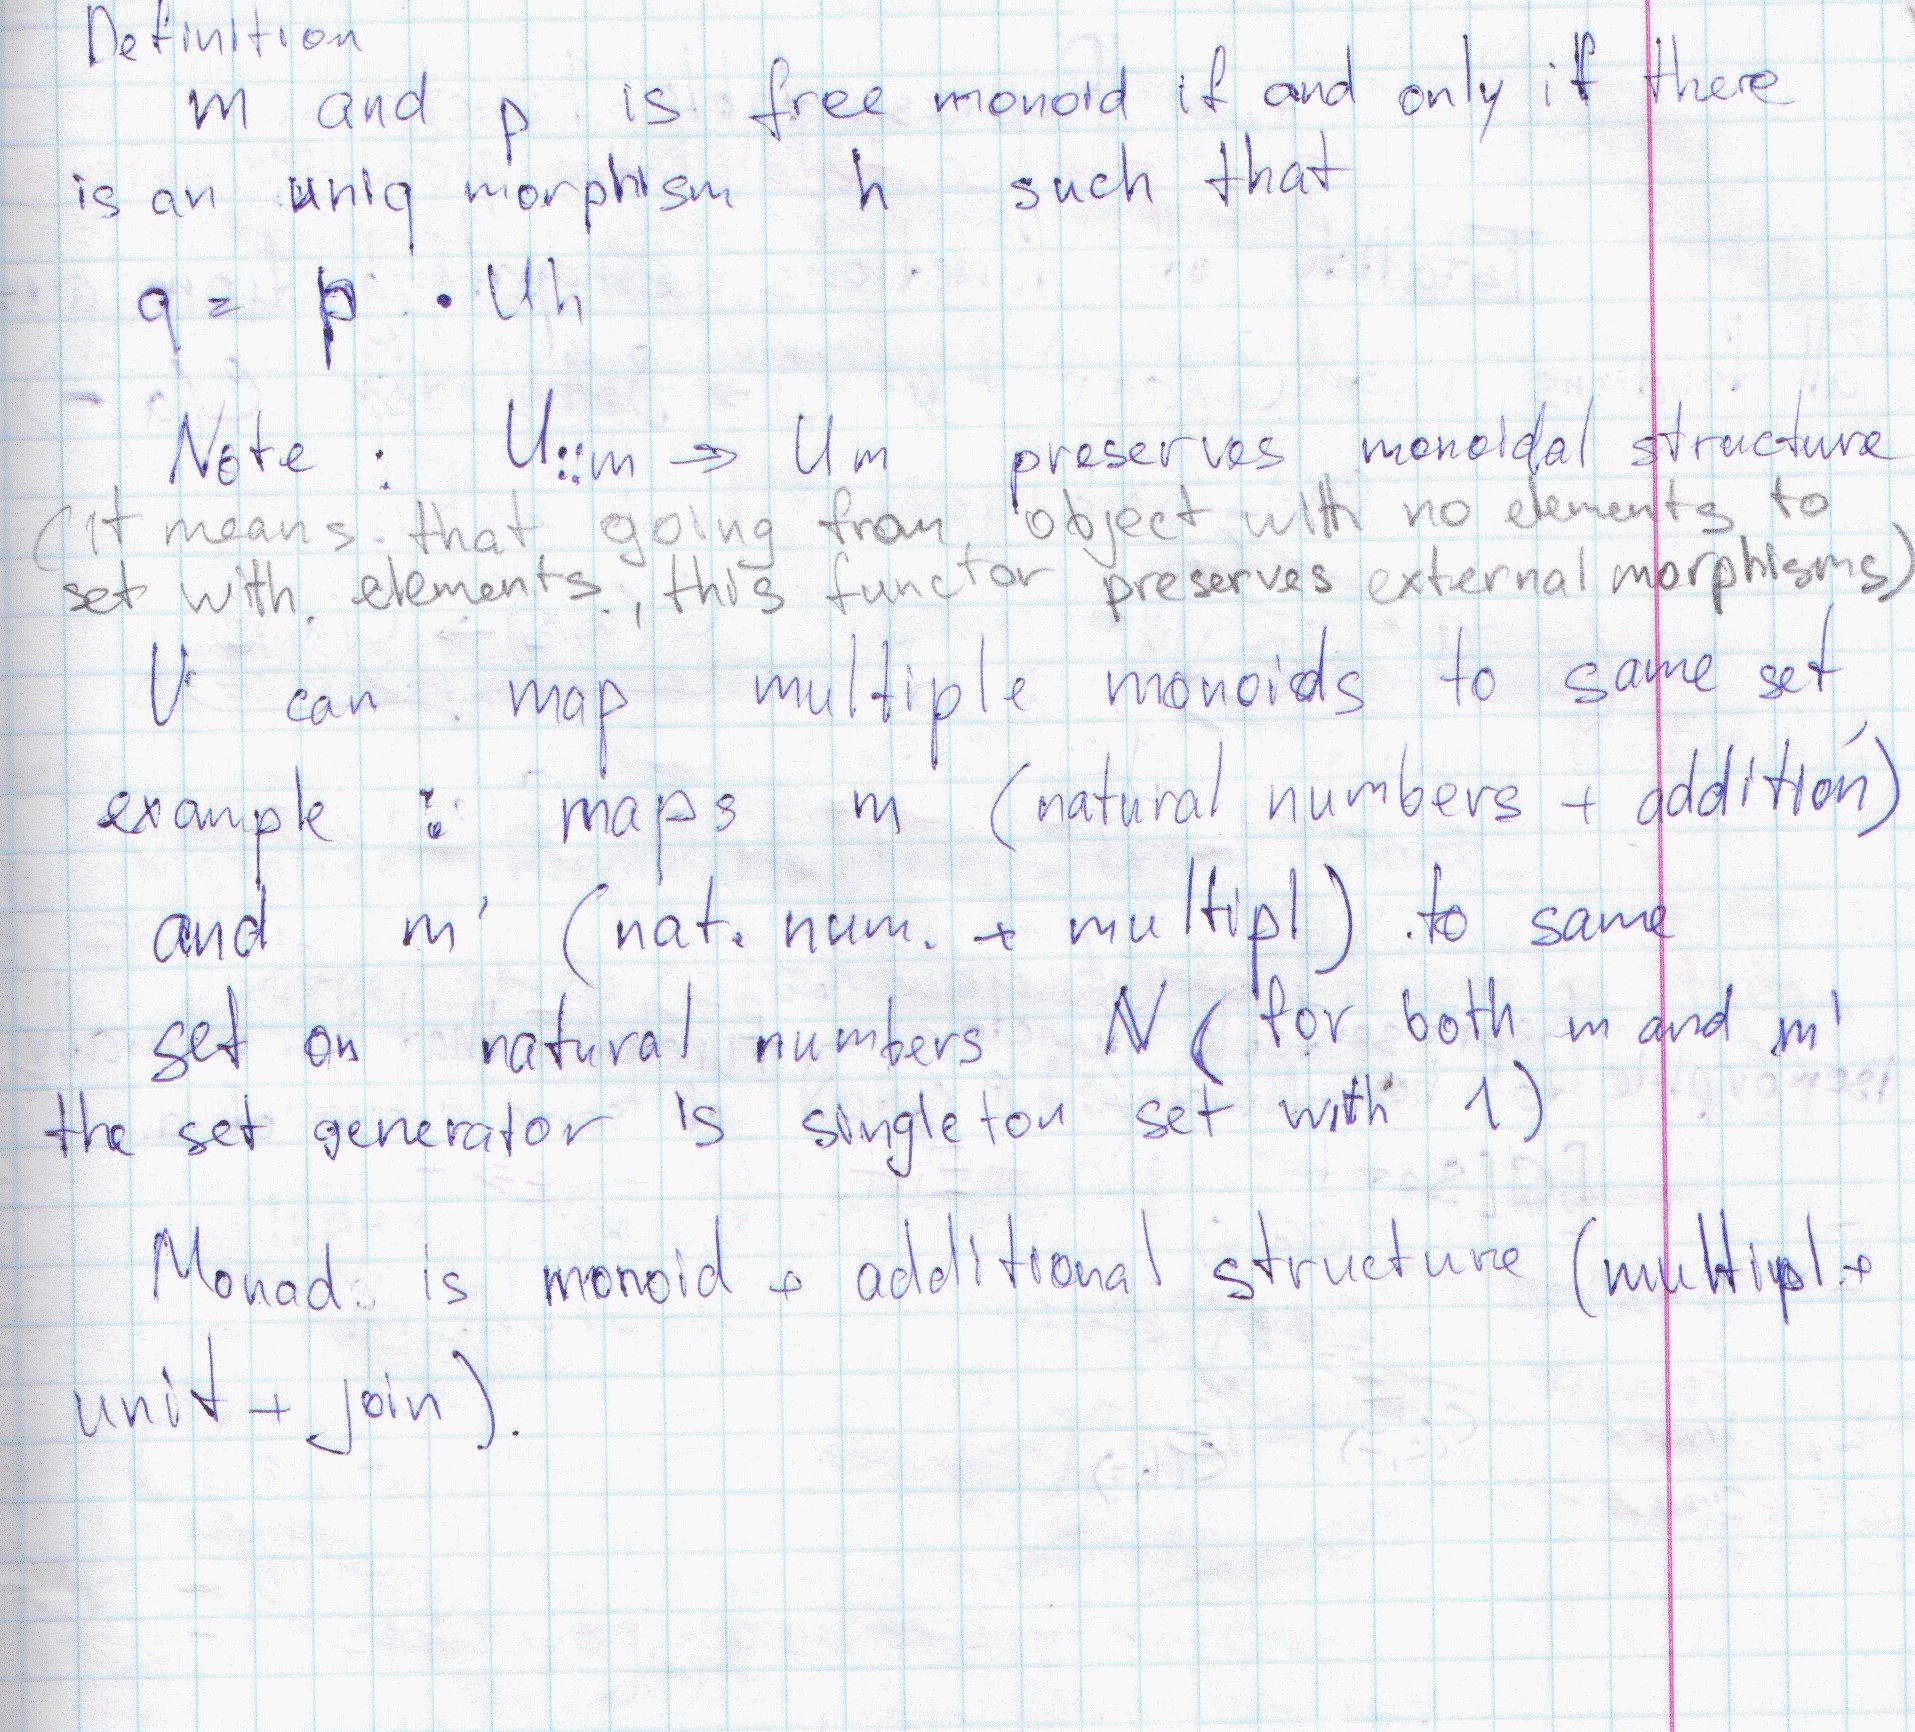 Definition
m and p is free monoid if and only if there
is an uniq morphism h such that
q = p . Uh
Note : U::m → Um preserves monoidal structure
(it means that going from object with no elements to
set with elements, this functor preserves external morphisms)
U can map multiple monoids to same set
example : maps m (natural numbers + addition)
and m' (nat. num. + multipl) to same
set on natural numbers N (for both m and m'
the set generator is singleton set with 1)
Monad is monoid + additional structure (multipl. +
unit + join).